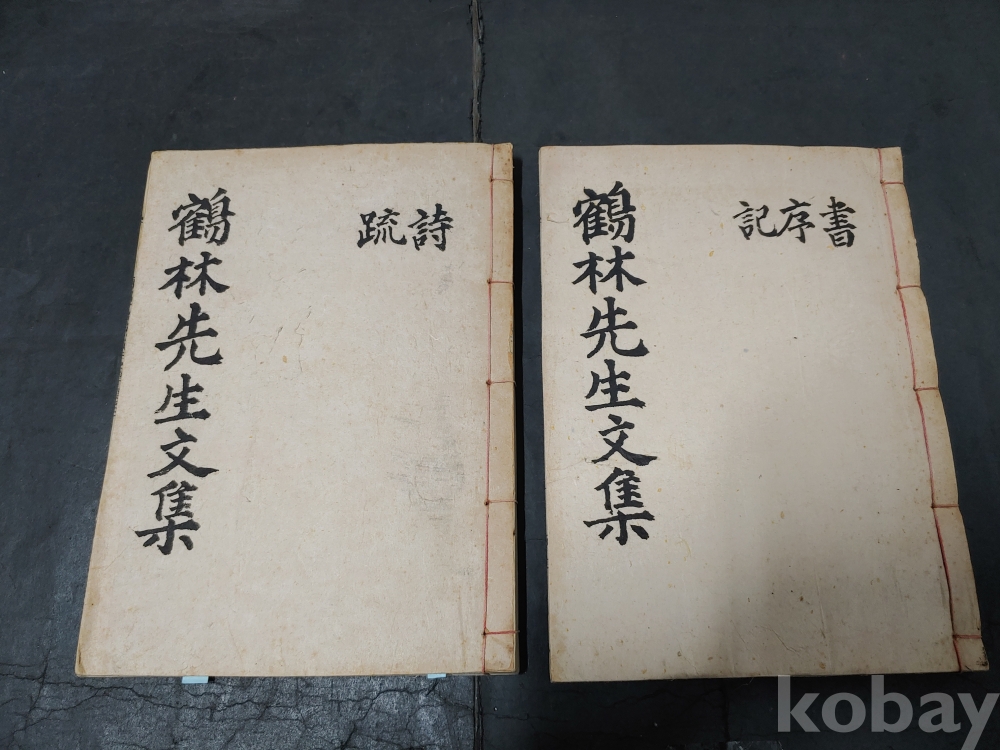 鶴林先生文集
詩
疏
鶴林先生文集
書
序
記
kobay